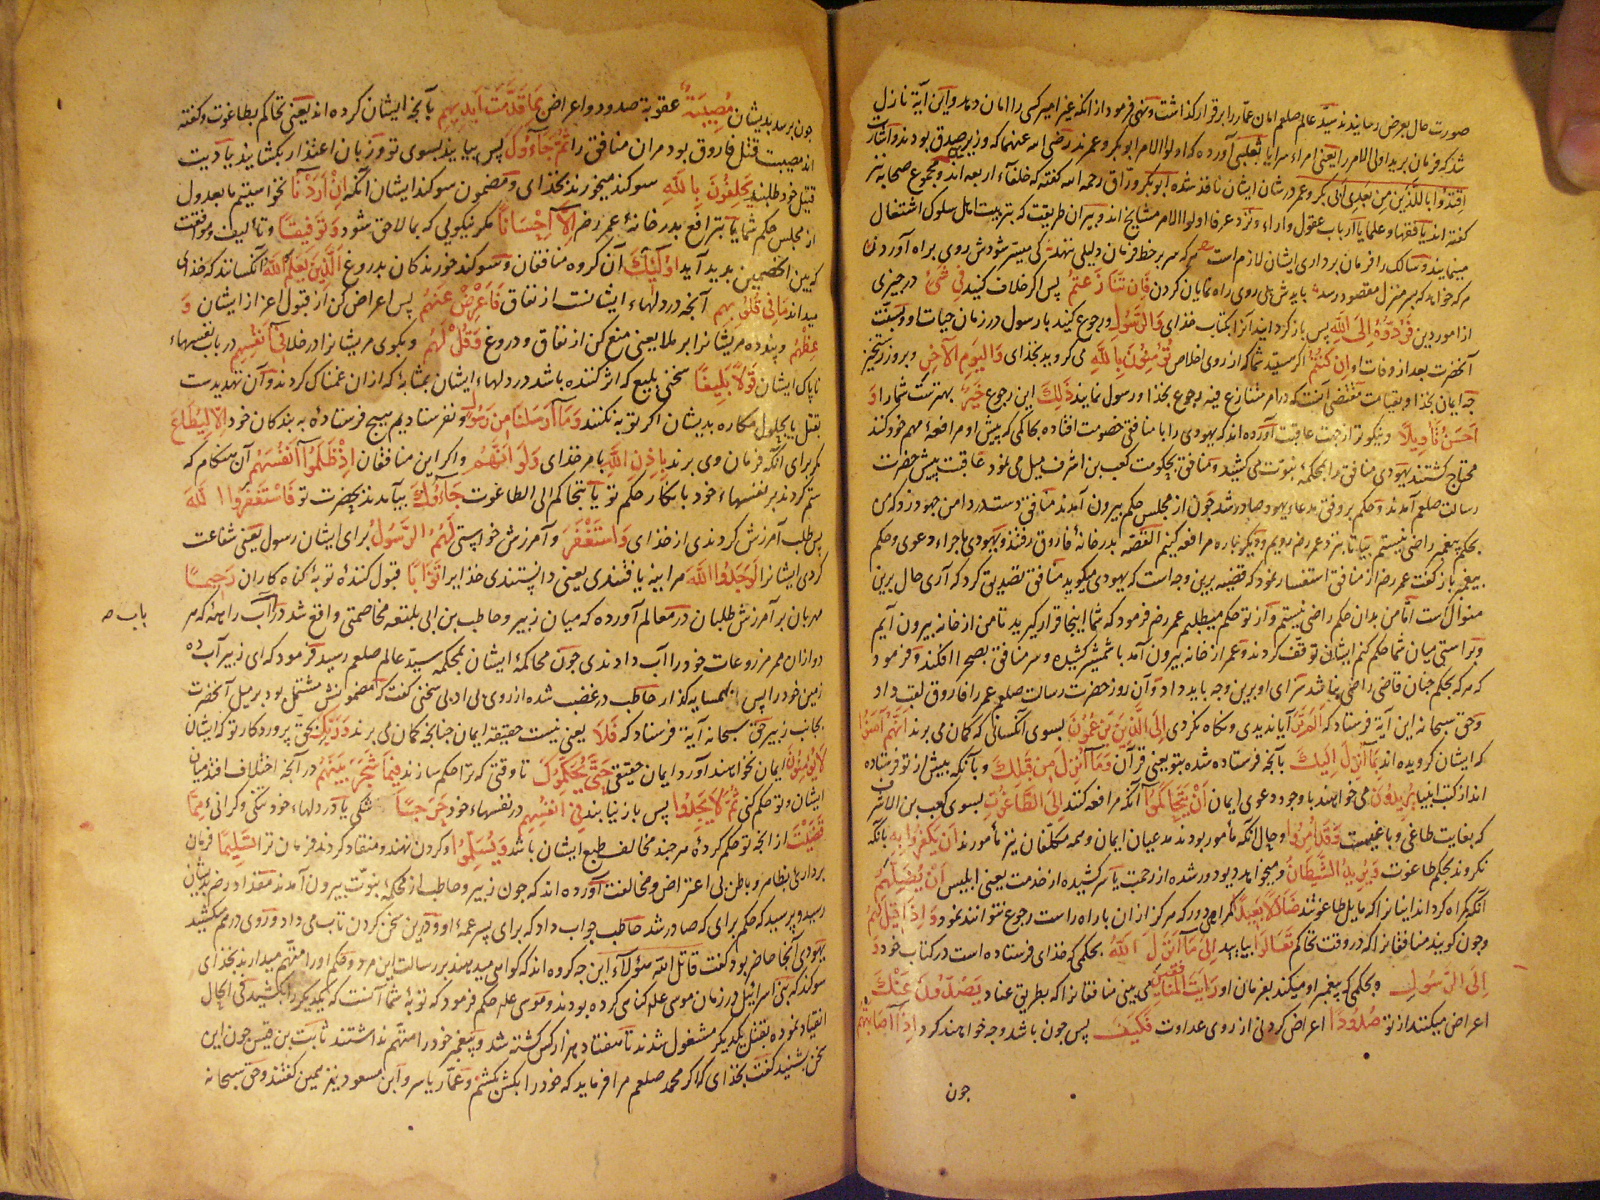 صورت حال بعرض رسانیدند سید عالم صلعم امان عمار را برقرار گذاشت و نهی فرمود از آنکه غیر امیر کسی را امان دهد و این آیة نازل
شد که فرمان برید اولی الامر را یعنی امراء سرایا ثعلبی آورده که اولوا الامر ابوبکر و عمرند رضی الله عنهما که وزیر صدق بودند و آثار
اقتدوا باللذین من بعدی ابی بکر و عمر در شان ایشان نافذ شده ابوبکر وراق رحمه الله گفته که خلفاء اربعه اند و مجموع صحابه نیز
گفته اند یا فقها و علما یا ارباب عقول و اراء و نزد عرفا اولوا الامر مشایخ اند و پیران طریقت که بتربیت اهل سلوک اشتغال
مینمایند و سالک را فرمان برداری ایشان لازم است هر که سر بر خط فرمان دلیلی ننهد کی میسر شودش روی براه آوردن
هر که خواهد که بسر منزل مقصود رسد بایدش پی روی راه نمایان کردن فان تنازعتم پس اگر خلاف کنید فی شیء در چیزی
از امور دین فردوه الی الله پس باز گردانید آنرا بکتاب خدای والرسول و رجوع کنید با رسول در زمان حیات او و بسنت
آنحضرت بعد از وفات او ان کنتم اگر هستید شما که از روی اخلاص تؤمنون بالله می گروید بخدای والیوم الآخر و بروز رستخیز
چه ایمان بخدا و بقیامت مقتضی آنست که در امر متنازع فیه رجوع بخدا و رسول نمایند ذلک این رجوع خیر بهترست شما را و
احسن تأویلا و نیکوتر از جهت عاقبت آورده اند که یهودی را با منافقی خصومت افتاده بحاکمی که پیش او مرافعهٔ مهم خود کنند
محتاج گشتند یهودی منافق را بمحکمهٔ نبوت می کشید و منافق بحکومت کعب بن اشرف میل می نمود عاقبت پیش حضرت
رسالت صلعم آمدند و حکم بر وفق مدعاء یهود صادر شد چون از مجلس حکم بیرون آمدند منافق دست در دامن جهود زد که من
بحکم پیغمبر راضی نیستم بیا تا نزد عمر رضه رویم و دیگر باره مرافعه کنیم القصه بدر خانهٔ فاروق رفتند و یهودی ماجراء دعوی و حکم
پیغمبر باز گفت عمر رضه از منافق استفسار نمود که قضیه برین وجه است که یهودی میگوید منافق تصدیق کرد که آری حال برین
منوال است اما من بدان حکم راضی نیستم و از تو حکم میطلبم عمر رضه فرمود که شما اینجا قرار گیرید تا من از خانه بیرون آیم
و براستی میان شما حکم کنم ایشان توقف کردند و عمر از خانه بیرون آمد با شمشیر کشیده و سر منافق بصحرا افکند و فرمود
که هر که بحکم چنان قاضی راضی نباشد سزای او برین وجه باید داد و آن روز حضرت رسالت صلعم عمر را فاروق لقب داد
و حق سبحانه این آیة فرستاد که الم تر آیا ندیدی و نگاه نکردی الی الذین یزعمون بسوی آنکسانی که گمان می برند انهم آمنوا
که ایشان گرویده اند بما انزل الیک بآنچه فرستاده شده بتو یعنی قرآن و ما انزل من قبلک و بآنکه پیش از تو فرستاده
اند از کتب انبیا یریدون می خواهند با وجود دعوی ایمان ان یتحاکموا آنکه مرافعه کنند الی الطاغوت بسوی کعب بن الاشرف
که بغایت طاغی و باغیست و قد امروا و حال آنکه مأمور بودند مدعیان ایمان و همه مکلفان نیز مأمورند ان یکفروا به بآنکه
نگروند بحکم طاغوت و یرید الشیطان و میخواهد دیو دور شده از رحمت یا سر کشیده از خدمت یعنی ابلیس ان یضلهم
آنکه گمراه کرداند ایشانرا که مایل طاغوتند ضلالا بعیدا گمراهی دور که هرگز از ان با راه راست رجوع نتوانند نمود و اذا قیل لهم
و چون گویند منافقانرا که در وقت تحاکم تعالوا بیایید الی ما انزل الله بحکمی که خدای فرستاده است در کتاب خود و
الی الرسول و بحکمی که پیغمبر او میکند بفرمان او رایت المنافقین می بینی منافقانرا که بطریق عناد یصدون عنک
اعراض میکنند از تو صدودا اعراض کردنی از روی عداوت فکیف پس چون باشد و چه خواهند کرد اذا اصابتهم
چون
چون برسد بدیشان مصیبة عقوبة صدود و اعراض بما قدمت ایدیهم بآنچه ایشان کرده اند یعنی تحاکم بطاغوت و گفته
اند مصیبت قتل فاروق بود مران منافق را ثم جاؤوک پس بیایند بسوی تو و زبان اعتذار بگشایند یا دیت
قتیل خود طلبند یحلفون بالله سوگند میخورند بخدای و مضمون سوگند ایشان آنکه ان اردنا نخواستیم ما بعدول
از مجلس حکم شما یا بترافع بدر خانهٔ عمر رضه الا احسانا مگر نیکویی که بما لاحق شود و توفیقا و تالیف و موافقت
که بین الخصمین بدید آید اولئک آن گروه منافقان و سوگند خورندکان بدروغ الذین یعلم الله آنکسانند که خدای
میداند ما فی قلوبهم آنچه در دلهاء ایشانست از نفاق فاعرض عنهم پس اعراض کن از قبول اعزاز ایشان و
عظهم و پند ده مریشانرا بر ملا یعنی منع کن از نفاق و دروغ و قل لهم و بگوی مریشانرا در خلا فی انفسهم در باب نفسهاء
ناپاک ایشان قولا بلیغا سخنی بلیغ که اثر کننده باشد در دلهاء ایشان بمثابهٔ که از ان غمناک گردند و آن تهدیدست
بقتل یا بحلول مکاره بدیشان اگر توبه نکنند و ما ارسلنا من رسول و نفرستادیم هیچ فرستادهٔ به بندکان خود الا لیطاع
مگر برای آنکه فرمان وی برند باذن الله بامر خدای ولو انهم و اگر این منافقان اذ ظلموا انفسهم آن هنگام که
ستم کردند بر نفسهاء خود بانکار حکم تو یا بتحاکم الی الطاغوت جاؤک بیامدندی بحضرت تو فاستغفروا الله
پس طلب آمرزش کردندی از خدای و استغفر و آمرزش خواستی لهم الرسول برای ایشان رسول یعنی شفاعت
کردی ایشانرا لوجدوا الله هر اینه یافتندی یعنی دانستندی خدایرا توابا قبول کنندهٔ توبهٔ گناه کاران رحیما
مهربان بر آمرزش طلبان در معالم آورده که میان زبیر و حاطب بن ابی بلتعه مخاصمتی واقع شد در آب راههٔ که هر
باب ص
دو ازان ممر مزروعات خود را آب دادندی چون محاکمهٔ ایشان بمحکمه سید عالم صلعم رسید فرمود که ای زبیر آب ده
زمین خود را پس بهمسایه گذار حاطب در غضب شده از روی بی ادبی سخنی گفت که مضمونش مشتمل بود بر میل آنحضرت
بجانب زبیر حق سبحانه آیة فرستاد که فلا یعنی نیست حقیقه ایمان چنانچه گمان می برند و ربک بحق پروردکار تو که ایشان
لا یؤمنون ایمان نخواهند آورد ایمان حقیقی حتی یحکموک تا وقتی که ترا حکم سازند فیما شجر بینهم در آنچه اختلاف افتد میان
ایشان و تو حکم کنی ثم لا یجدوا پس باز نیابند فی انفسهم در نفسهاء خود حرجا شکی یا در دلهاء خود تنگی و گرانیٔ مما
قضیت از انچه تو حکم کردهٔ هر چند مخالف طبع ایشان باشد و یسلموا و گردن نهند و منقاد گردند فرمان ترا تسلیما فرمان
برداریٔ بظاهر و باطن بی اعتراض و مخالفت آورده اند که چون زبیر و حاطب از محکمهٔ نبوت بیرون آمدند مقداد رضه بدیشان
رسید و پرسید که حکم برای که صادر شد حاطب جواب داد که برای پسر عمهٔ او و درین سخن گردن تاب می داد و روی درهم میکشید
یهودی آنجا حاضر بود گفت قاتل الله هؤلاء این چه گروه اند که گواهی میدهند بر رسالت این مرد و حکم او را متهم میدارند بخدای
سوگند که بنی اسرائیل در زمان موسی علم گناهی کرده بودند و موسی علم حکم فرمود که توبهٔ شما آنست که یکدیگر را بکشید فی الحال
انقیاد نموده بقتل یکدیگر مشغول شدند تا هفتاد هزار کس کشته شد و پیغمبر خود را متهم نداشتند ثابت بن قیس چون این
سخن بشنید گفت بخدای که اگر محمد صلعم مرا فرماید که خود را بکش بکشم و عمار یاسر و ابن مسعود نیز همین گفتند و حق سبحانه